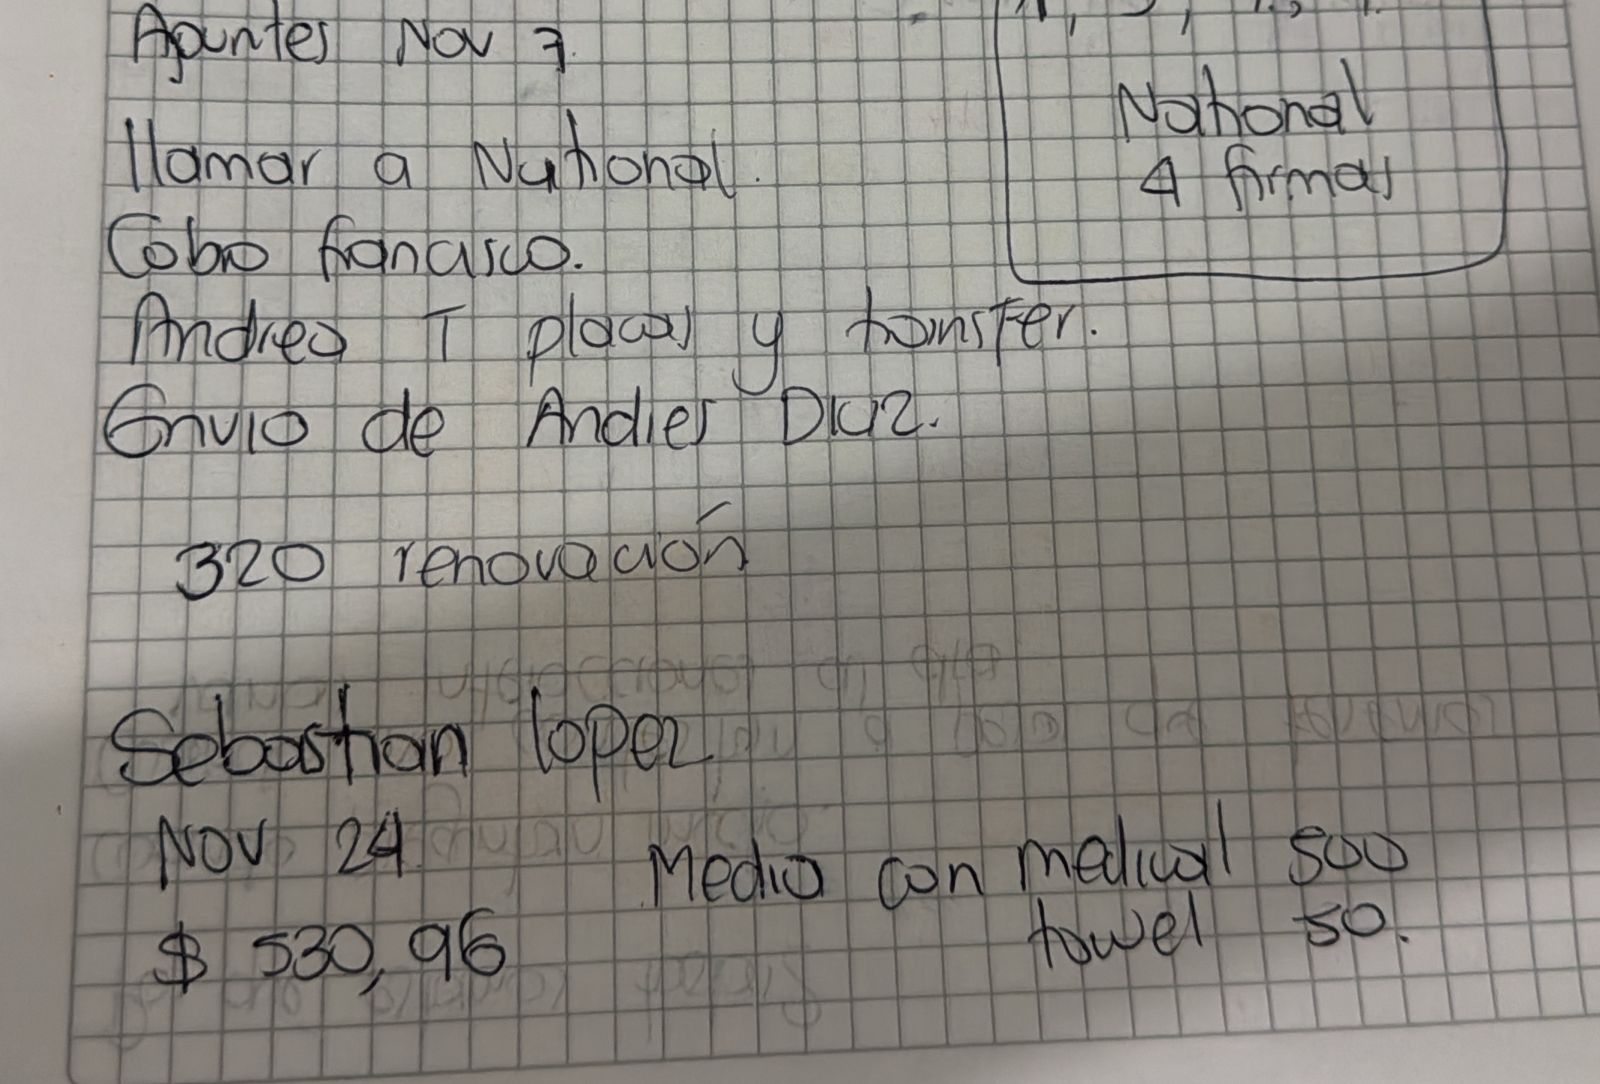 Apuntes Nov 7.
llamar a National.
Cobro francisco.
Andrea T placas y transfer.
Envio de Andres Diaz.
National
4 firmas
320 renovación
Sebastian lopez
Nov 24
$ 530,96
Medio con medical 500
towel 50.